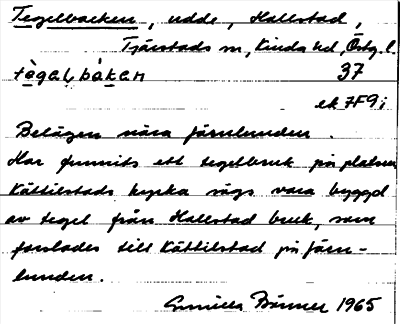 Tegelbacken, udde, Hallstad,
Tjärstads sn, Kinda hd, Östg. l.
tègal,bàkan 37
ek 7F9i
Belägen nära Järnlunden.
Har funnits ett tegelbruk på platsen
Kättilstads kyrka sägs vara byggd
av tegel från Hallstad bruk, som
forslades till Kättilstad på Järn-
lunden.
Gunilla 1965